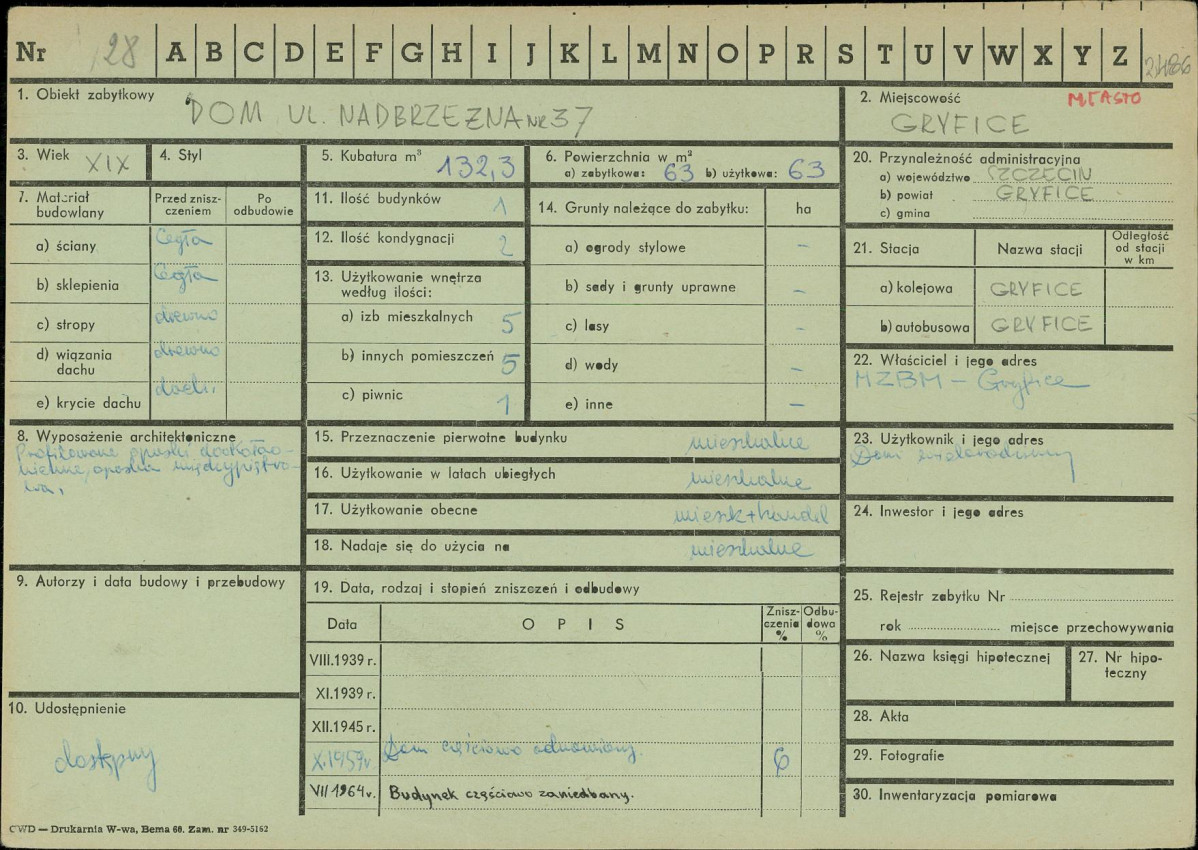 Nr 28 A B C D E F G H I J K L M N O P R S T U V W X Y Z 2486
1. Obiekt zabytkowy
DOM UL. NADBRZEŻNA NR 37
2. Miejscowość MIASTO
GRYFICE
3. Wiek XIX
4. Styl
5. Kubatura m³ 132,3
6. Powierzchnia w m²
a) zabytkowa: 63 b) użytkowa: 63
20. Przynależność administracyjna
a) województwo SZCZECIN
b) powiat GRYFICE
c) gmina
7. Materiał budowlany
Przed zniszczeniem
Po odbudowie
a) ściany Cegła
b) sklepienia Cegła
c) stropy drewno
d) wiązania dachu drewno
e) krycie dachu
11. Ilość budynków 1
12. Ilość kondygnacji 2
13. Użytkowanie wnętrza
według ilości:
a) izb mieszkalnych 5
b) innych pomieszczeń 5
c) piwnic 1
14. Grunty należące do zabytku: ha
a) ogrody stylowe –
b) sady i grunty uprawne –
c) lasy –
d) wody –
e) inne –
21. Stacja Nazwa stacji Odległość od stacji w km
a) kolejowa GRYFICE
b) autobusowa GRYFICE
22. Właściciel i jego adres
MZBM – Gryfice
8. Wyposażenie architektoniczne
Profilowane opaski dookoła o-
kienne, opaska międzypiętro-
wa.
15. Przeznaczenie pierwotne budynku mieszkalne
16. Użytkowanie w latach ubiegłych mieszkalne
17. Użytkowanie obecne mieszk + handel
18. Nadaje się do użycia na mieszkalne
23. Użytkownik i jego adres
Dom wielorodzinny
24. Inwestor i jego adres
9. Autorzy i data budowy i przebudowy
10. Udostępnienie
dostępny
19. Data, rodzaj i stopień zniszczeń i odbudowy
Data OPIS Zniszczenia % Odbudowa %
VIII.1939 r.
XI.1939 r.
XII.1945 r.
X.1959 r. Dom częściowo odnowiony. 6
VII 1964 r. Budynek częściowo zaniedbany.
25. Rejestr zabytku Nr
rok miejsce przechowywania
26. Nazwa księgi hipotecznej
27. Nr hipoteczny
28. Akta
29. Fotografie
30. Inwentaryzacja pomiarowa
CWD — Drukarnia W-wa, Bema 60. Zam. nr 349-5162